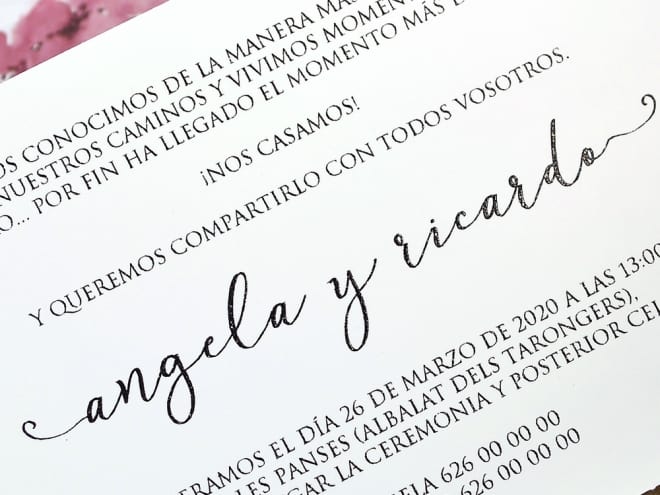 CONOCIMOS DE LA MANERA
NUESTROS CAMINOS Y VIVIMOS
POR FIN HA LLEGADO EL MOMENTO MÁS
¡NOS CASAMOS!
Y QUEREMOS COMPARTIRLO CON TODOS VOSOTROS.
angela y ricardo
EL DÍA 26 DE MARZO DE 2020 A LAS 13:00
LES PANSES (ALBALAT DELS TARONGERS),
LA CEREMONIA Y POSTERIOR
626 00 00 00
626 00 00 00